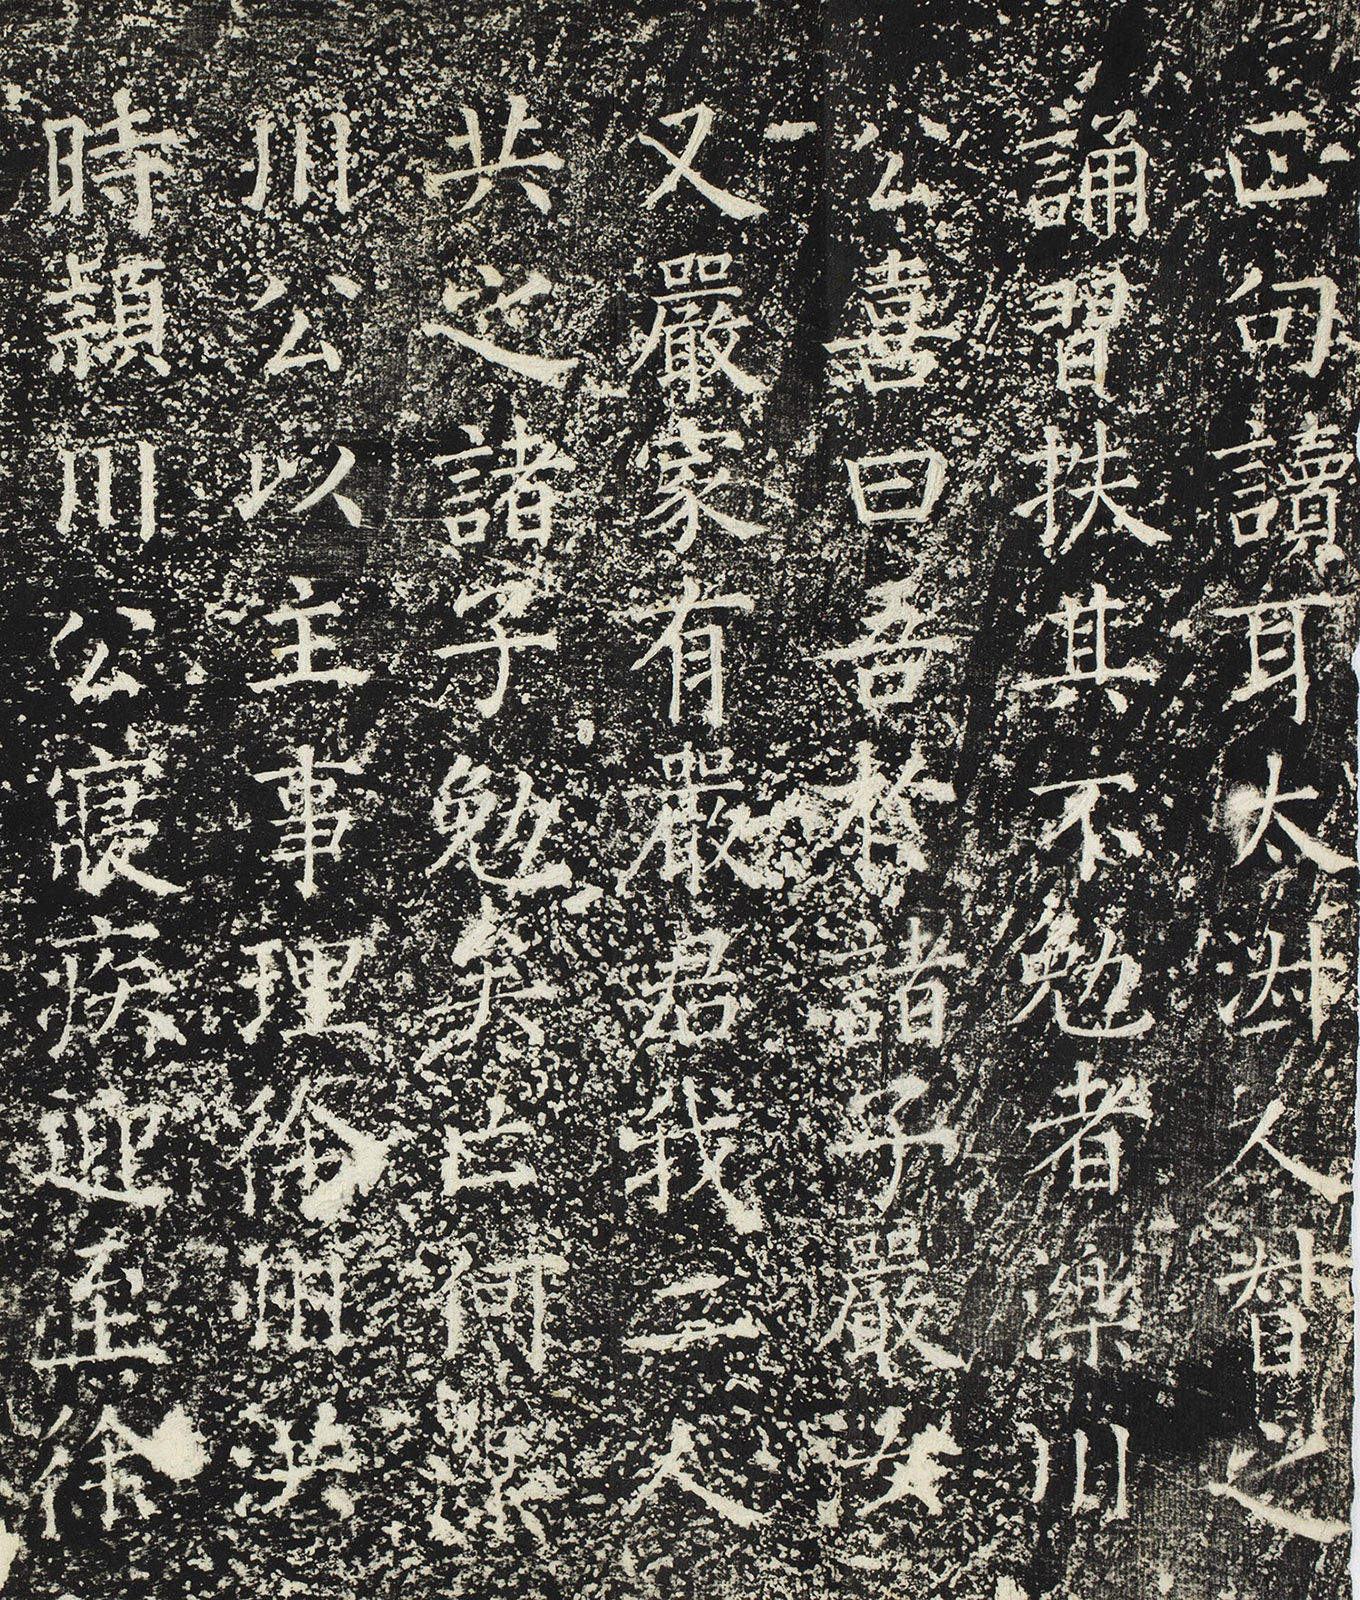 正句讀耳太淑人督之
誦習扶其不勉者濼川
公喜曰吾於諸子嚴矣
又嚴家有嚴君我二人
共之諸子勉矣亡何濼
川公以主事理徐州洪
時頴川公寢疾迎至徐